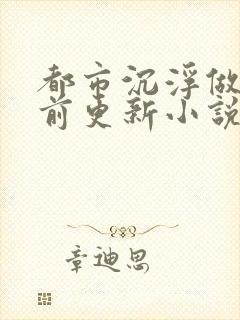 都市沉浮做
前更新小説
章迪思